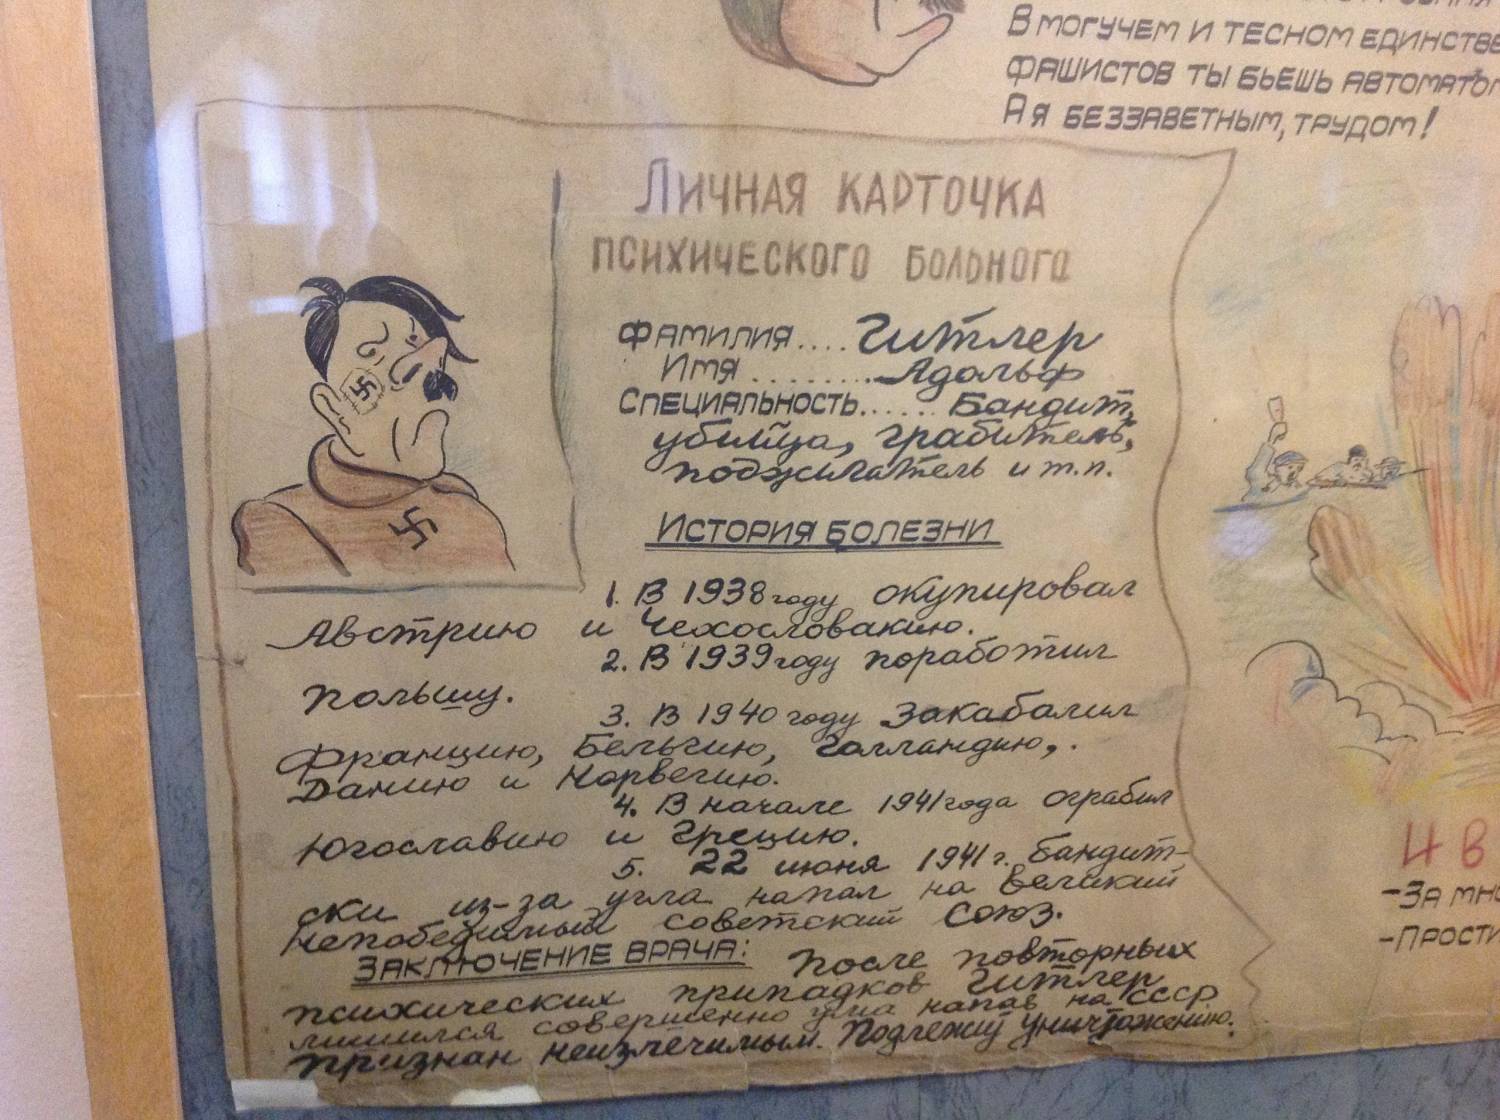 В МОГУЧЕМ И ТЕСНОМ ЕДИНСТВЕ
ФАШИСТОВ ТЫ БЬЕШЬ АВТОМАТОМ
А Я БЕЗЗАВЕТНЫМ, ТРУДОМ!
ЛИЧНАЯ КАРТОЧКА
ПСИХИЧЕСКОГО БОЛЬНОГО
ФАМИЛИЯ.... Гитлер
ИМЯ ........ Адольф
СПЕЦИАЛЬНОСТЬ...... Бандит,
убийца, грабитель,
поджигатель и т.п.
ИСТОРИЯ БОЛЕЗНИ
1. В 1938 году окупировал
Австрию и Чехословакию.
2. В 1939 году поработил
польшу.
3. В 1940 году закабалил
Францию, Бельгию, Голландию,
Данию и Норвегию.
4. В начале 1941 года ограбил
Югославию и Грецию.
5. 22 июня 1941 г. бандит-
ски из-за угла напал на великий
непобедимый советский союз.
ЗАКЛЮЧЕНИЕ ВРАЧА: После повторных
психических припадков Гитлер
лишился совершенно ума напав на СССР
признан неизлечимым. Подлежит уничтожению.
И В
-ЗА МНО
-ПРОСТИ